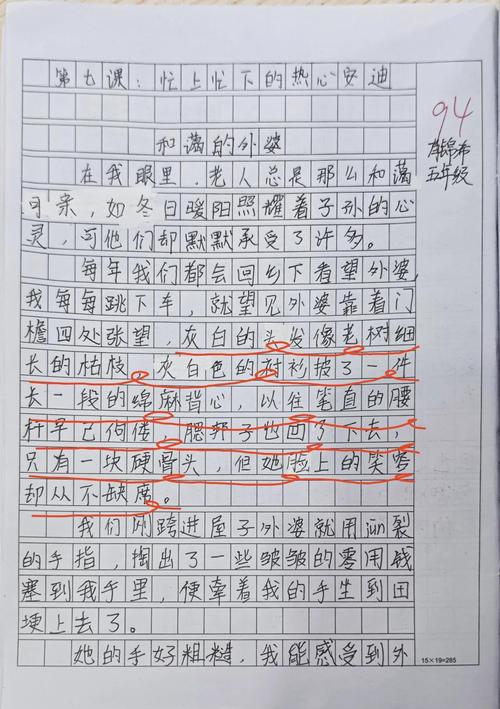 第七课：忙上忙下的热心安迪
94
和蔼的外婆
五年级
在我眼里，老人总是那么和蔼
可亲，如冬日暖阳照耀着子孙的心
灵，可他们却默默承受了许多。
每年我们都会回乡下看望外婆，
我每每跳下车，就望见外婆靠着门
檐四处张望，灰白的头发像老树细
长的枯枝，灰白色的衬衫披了一件
长一段的绵麻背心，以往笔直的腰
杆早已佝偻，腮帮子也凹了下去，
只有一块硬骨头，但她脸上的笑容
却从不缺席。
我们刚跨进屋子外婆就用jūn裂
的手指，掏出了一些皱皱的零用钱
塞到我手里，便牵着我的手生到田
埂上去了。
她的手好粗糙，我能感受到外
15×19=285